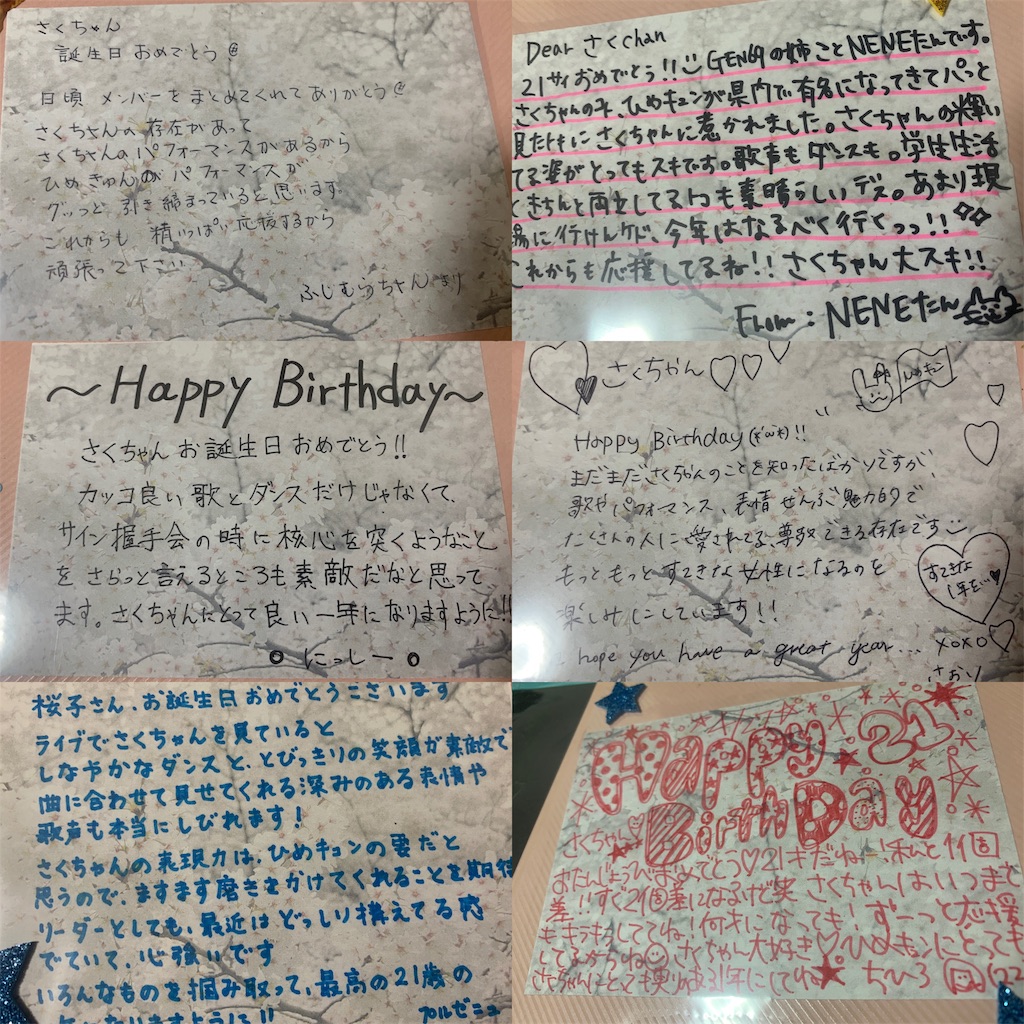 さくちゃん
誕生日 おめでとう
日頃 メンバーを まとめてくれて ありがとう
さくちゃんの 存在があって
さくちゃんの パフォーマンスがあるから
ひめきゅんの パフォーマンスが
グッっと 引き締まっていると思います。
これからも 精いっぱい 応援するから
頑張って下さい
ふじむらちゃん より
Dear さくchan
21サイおめでとう!! GEN69の姉ことNENEたんです。
さくちゃんの子、ひめキュンが県内で有名になってきてパっと
見たけにさくちゃんに惹かれました。さくちゃんの輝い
てる姿がとってもスキです。歌声もダンスも。学生生活
きちんと両立してるのも素晴らしいデス。あまり現
場に行けんケド、今年はなるべく行くっっ!!
これからも応援してるね!! さくちゃん大スキ!!
From:NENEたん
~Happy Birthday~
さくちゃん お誕生日おめでとう!!
カッコ良い歌とダンスだけじゃなくて、
サイン握手会の時に核心を突くようなこと
をさらっと言えるところも素敵だなと思って
ます。さくちゃんにとって良い一年になりますように!!
にっしー
さくちゃん
Happy Birthday !!
まだまださくちゃんのことを知ったばかりですが、
歌やパフォーマンス、表情 ぜんぶ魅力的で
たくさんの人に愛されてる、尊敬できる存在です
もっともっと すてきな女性になるのを
楽しみにしています!!
すてきな
1年を…
hope you have a great year... xoxo
さおり
桜子さん、お誕生日おめでとうございます
ライブでさくちゃんを見ていると
しなやかなダンスと、とびっきりの笑顔が素敵で
曲に合わせて見せてくれる深みのある表情や
歌声も本当にしびれます!
さくちゃんの表現力は、ひめキュンの要だと
思うので、ますます磨きをかけてくれることを期待
リーダーとしても、最近はどっしり構えてる感
でていて、心強いです
いろんなものを掴み取って、最高の21歳の
になりますように!!
プルゼニュ
Happy 21
BirthDay
さくちゃん
おたんじょうびおめでとう♡21才だね 私と11個
差!!すぐ21個差になるけど笑 さくちゃんはいつまで
もキラキラしててね!何才になっても!ずーっと応援
してるからね さくちゃん大好き♡ひめキュンにとっても
さくちゃんにとっても 1年にしてね★ ちひろ